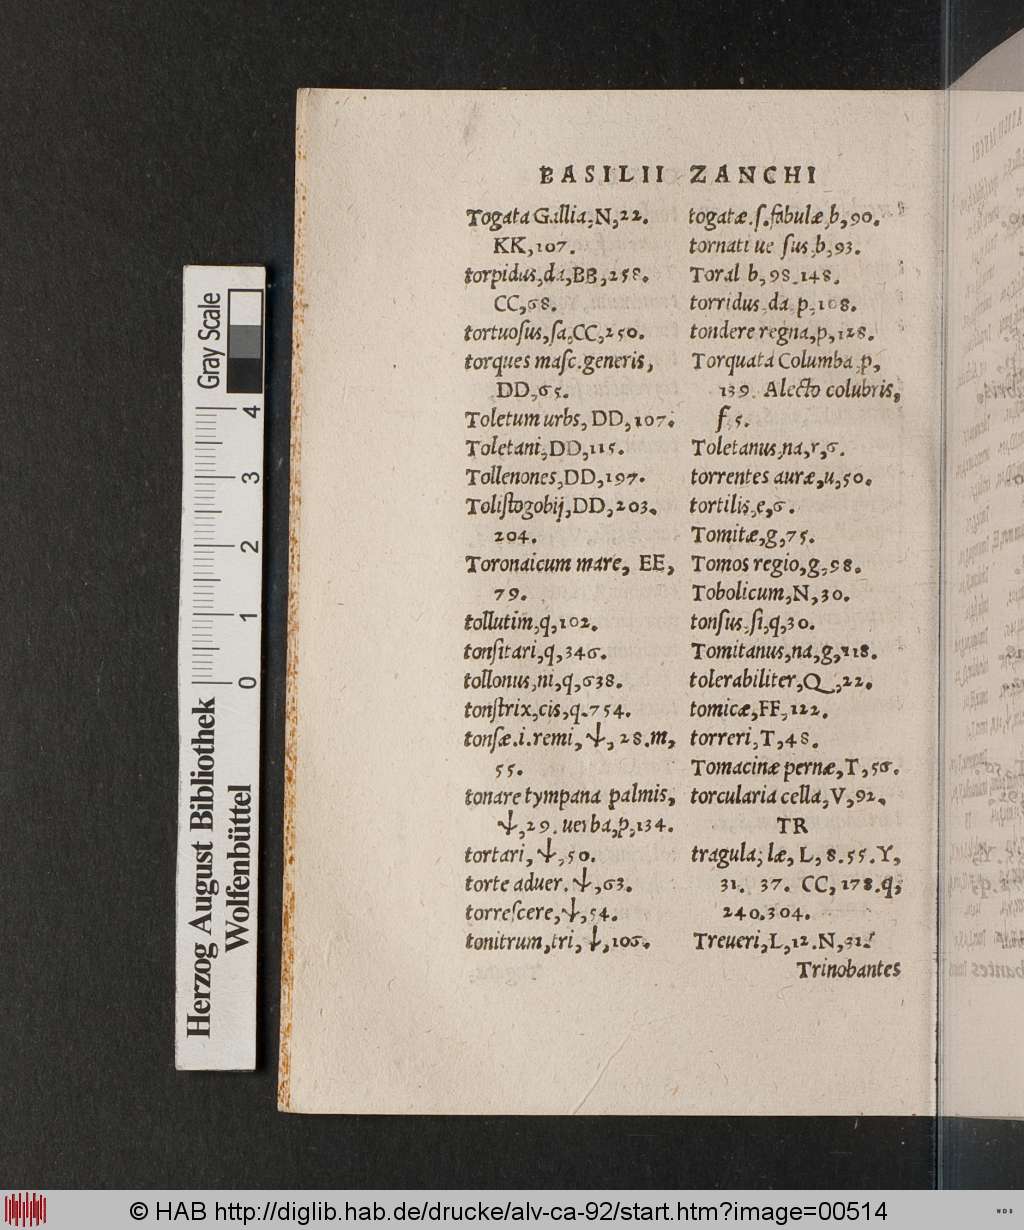 BASILII ZANCHI
Togata Gallia, N, 22.
KK, 107.
torpidus, da, BB, 258.
CC, 68.
tortuoſus, ſa, CC, 250.
torques maſc. generis,
DD, 65.
Toletum urbs, DD, 107.
Toletani, DD, 115.
Tollenones, DD, 197.
Toliſtogobij, DD, 203.
204.
Toronaicum mare, EE,
79.
tollutim, q, 102.
tonſitari, q, 346.
tollonus, ni, q, 638.
tonſtrix, cis, q. 754.
tonſæ. i. remi, ↓, 28. m,
55.
tonare tympana palmis,
↓, 29. uerba, p, 134.
tortari, ↓, 50.
torte aduer. ↓, 63.
torreſcere, ↓, 54.
tonitrum, tri, ↓, 106.
togatæ. ſ. fabulæ, b, 90.
tornati ue ſus, b, 93.
Toral b, 98. 148.
torridus, da p, 108.
tondere regna, p, 128.
Torquata Columba, p,
139. Alecto colubris,
f, 5.
Toletanus, na, r, 6.
torrentes auræ, u, 50.
tortilis, e, 6.
Tomitæ, g, 75.
Tomos regio, g, 98.
Tobolicum, N, 30.
tonſus, ſi, q, 30.
Tomitanus, na, g, 118.
tolerabiliter, Q, 22.
tomicæ, FF, 122.
torreri, T, 48.
Tomacinæ pernæ, T, 56.
torcularia cella, V, 92.
TR
tragula, læ, L, 8. 55. Y,
31. 37. CC, 178. q,
240. 304.
Treueri, L, 12. N, 31.
Trinobantes
Gray Scale
4
3
2
1
0
Herzog August Bibliothek
Wolfenbüttel
© HAB http://diglib.hab.de/drucke/alv-ca-92/start.htm?image=00514